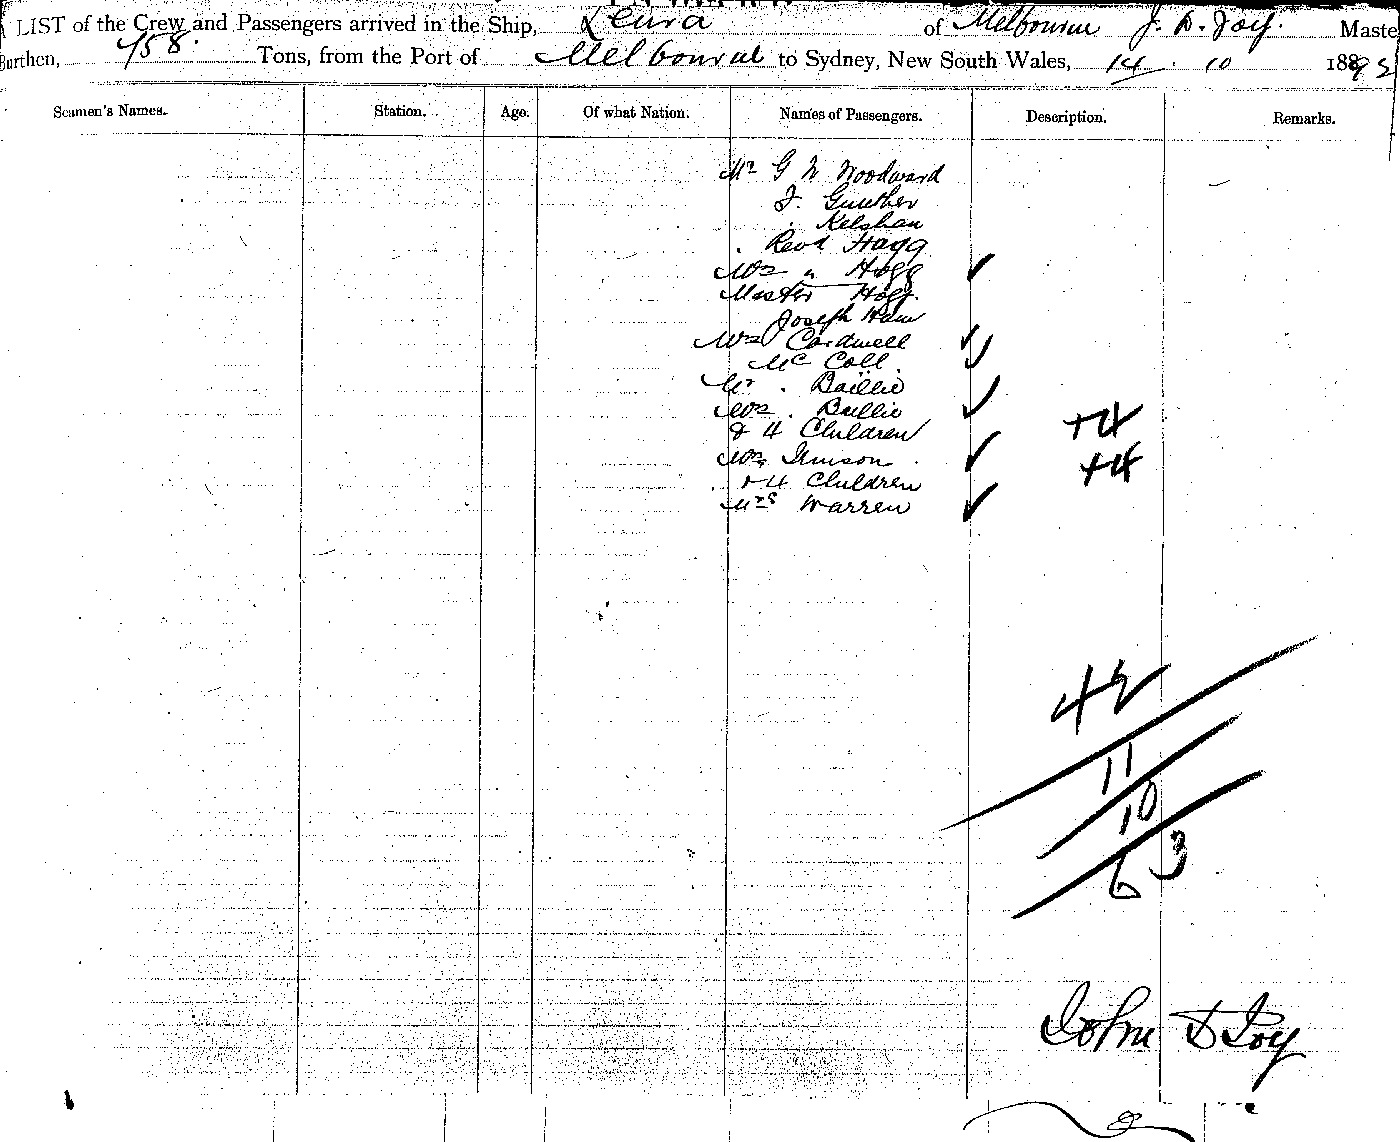 A LIST of the Crew and Passengers arrived in the Ship, Leura of Melbourne J. D. Joy. Maste
Burthen, 758. Tons, from the Port of Melbourne to Sydney, New South Wales, 14 . 10 1892
Seamen's Names. Station. Age. Of what Nation. Names of Passengers. Description. Remarks.
Mr G N Woodward
F. Gunther
Kelshaw
Revd Hagg
Mrs " Hogg
Master Hogg.
Joseph Ham
Mrs Cardwell
Mc Coll.
Mr . Baillie
Mrs . Baillie
& 4 Children +4
Mrs
+ 4 Children +4
Mrs Warren
42
11
10
63
John D Joy